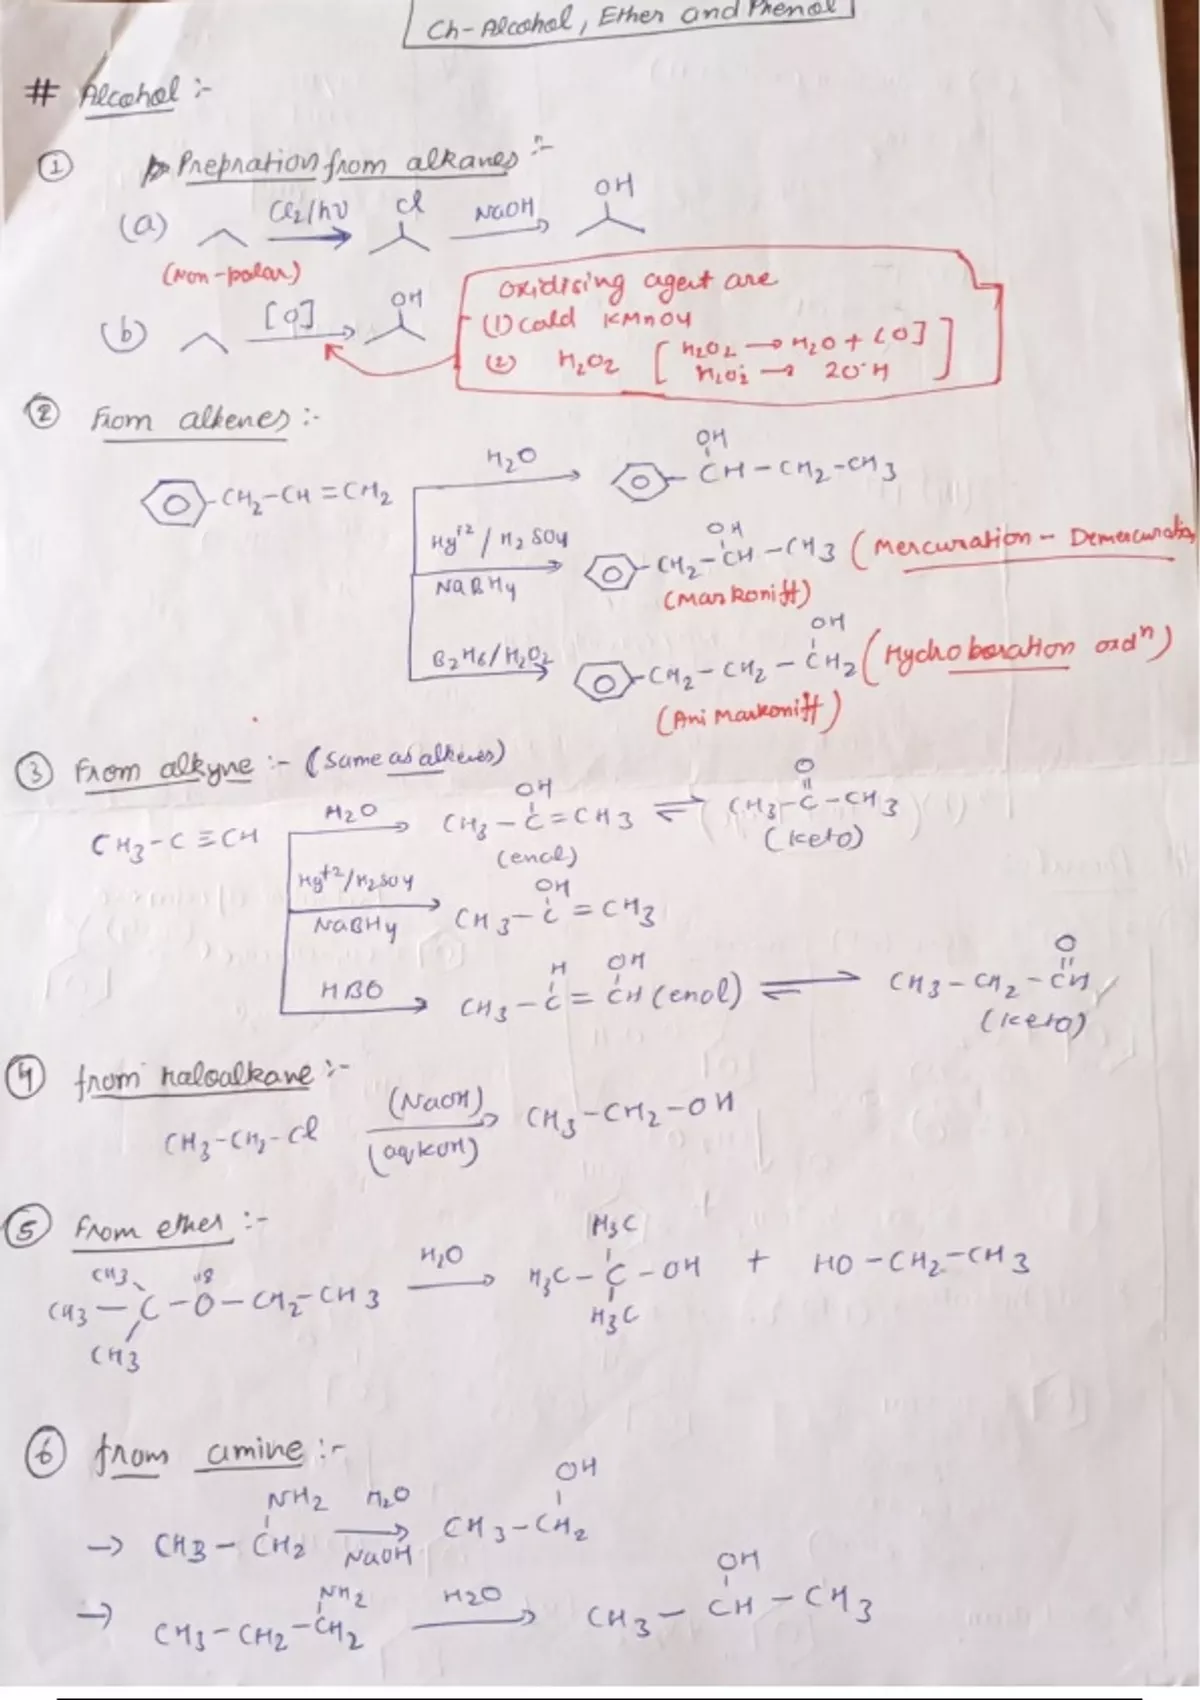 Ch-Alcohol, Ether and Phenol
# Alcohol :-
① Prepration from alkanes :-
(a) Cl2/hν Cl NaOH OH
(Non-polar)
(b) [O] OH
oxidising agent are
(1) cold KMnO4
(2) H2O2 [ H2O2 → H2O + [O]
H2O2 → 2O·H ]
② From alkenes :-
CH2-CH=CH2 H2O OH
CH-CH2-CH3
Hg+2/H2SO4 OH
NaBH4 CH2-CH-CH3 (Mercuration - Demercuration
(Markoniff)
B2H6/H2O2 OH
CH2-CH2-CH2 (Hydroboration oxdn)
(Ani Markoniff)
③ From alkyne :- (same as alkenes)
CH3-C≡CH H2O OH
CH3-C=CH3 ⇌ O
CH3-C-CH3
(enol) (keto)
Hg+2/H2SO4 OH
NaBH4 CH3-C=CH3
HBO H OH
CH3-C=CH (enol) ⇌ O
CH3-CH2-CH
(keto)
④ from haloalkane :-
CH3-CH2-Cl (NaOH)
(aqKOH) CH3-CH2-OH
⑤ From ether :-
CH3 18 H3C
CH3-C-O-CH2-CH3 H2O H3C-C-OH + HO-CH2-CH3
CH3 H3C
⑥ from amine :-
NH2 H2O OH
→ CH3-CH2 NaOH CH3-CH2
NH2 H2O OH
→ CH3-CH2-CH2 CH3-CH-CH3